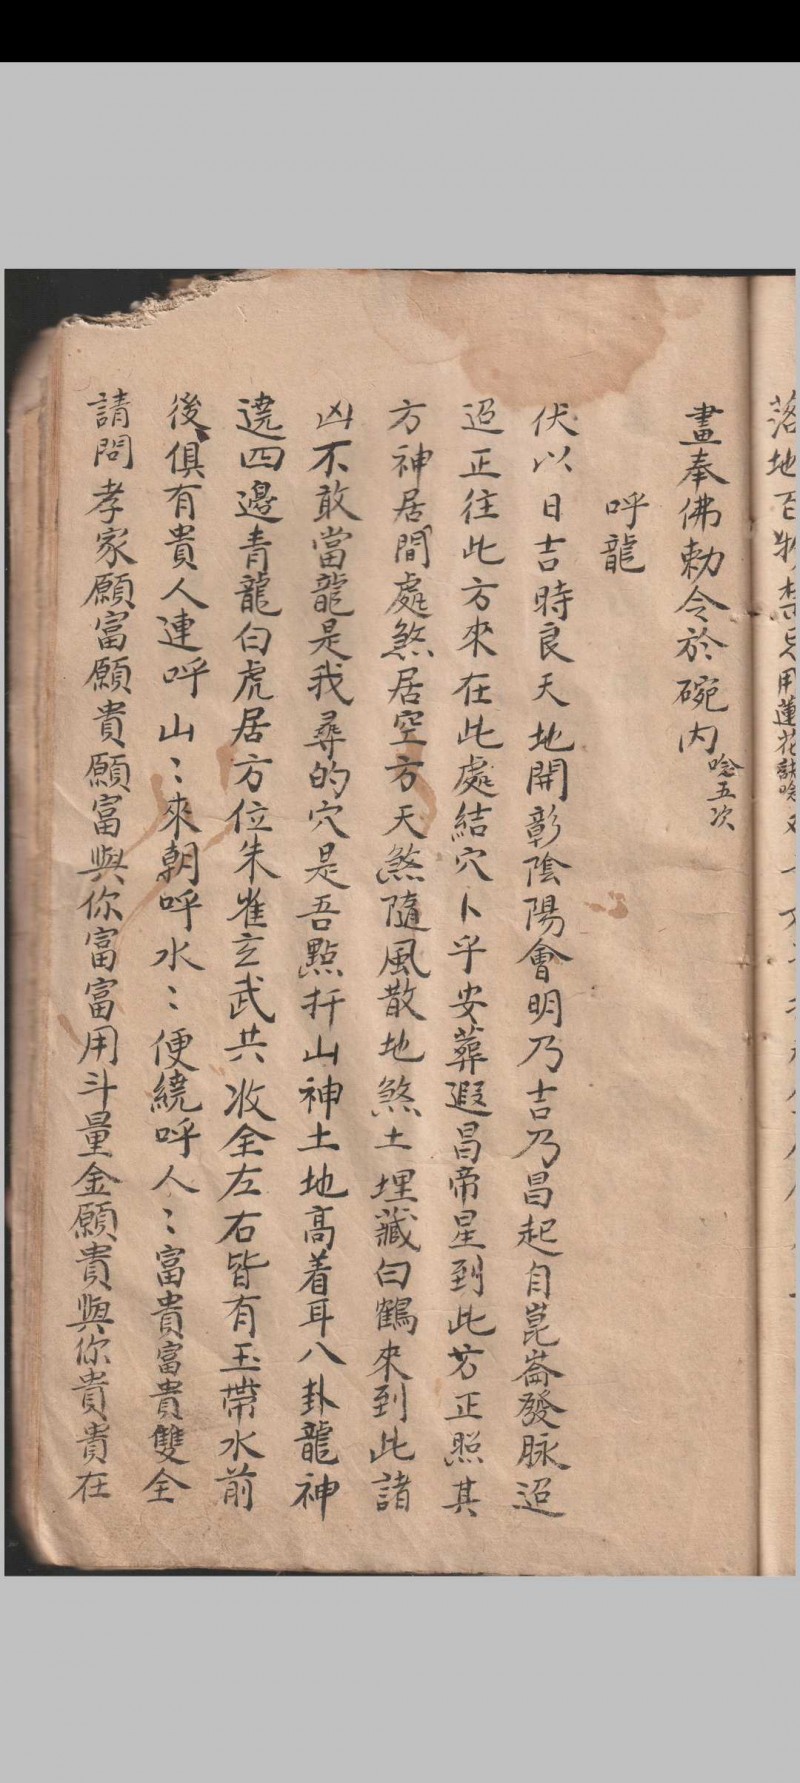 落地百物禁忌用蓮花訣唸
畫奉佛勅令於碗內唸五次
呼龍
伏以日吉時良天地開彰陰陽會明乃吉乃昌起自崑崙發脉迢
迢正往此方來在此處結穴卜乎安葬遐昌帝星到此方正照其
方神居間處煞居空方天煞隨風散地煞土埋藏白鶴來到此諸
凶不敢當龍是我尋的穴是吾點扦山神土地高着耳八卦龍神
遶四邊青龍白虎居方位朱雀玄武共收全左右皆有玉帶水前
後俱有貴人連呼山〻來朝呼水〻便繞呼人〻富貴富貴雙全
請問孝家願富願貴願富與你富富用斗量金願貴與你貴貴在